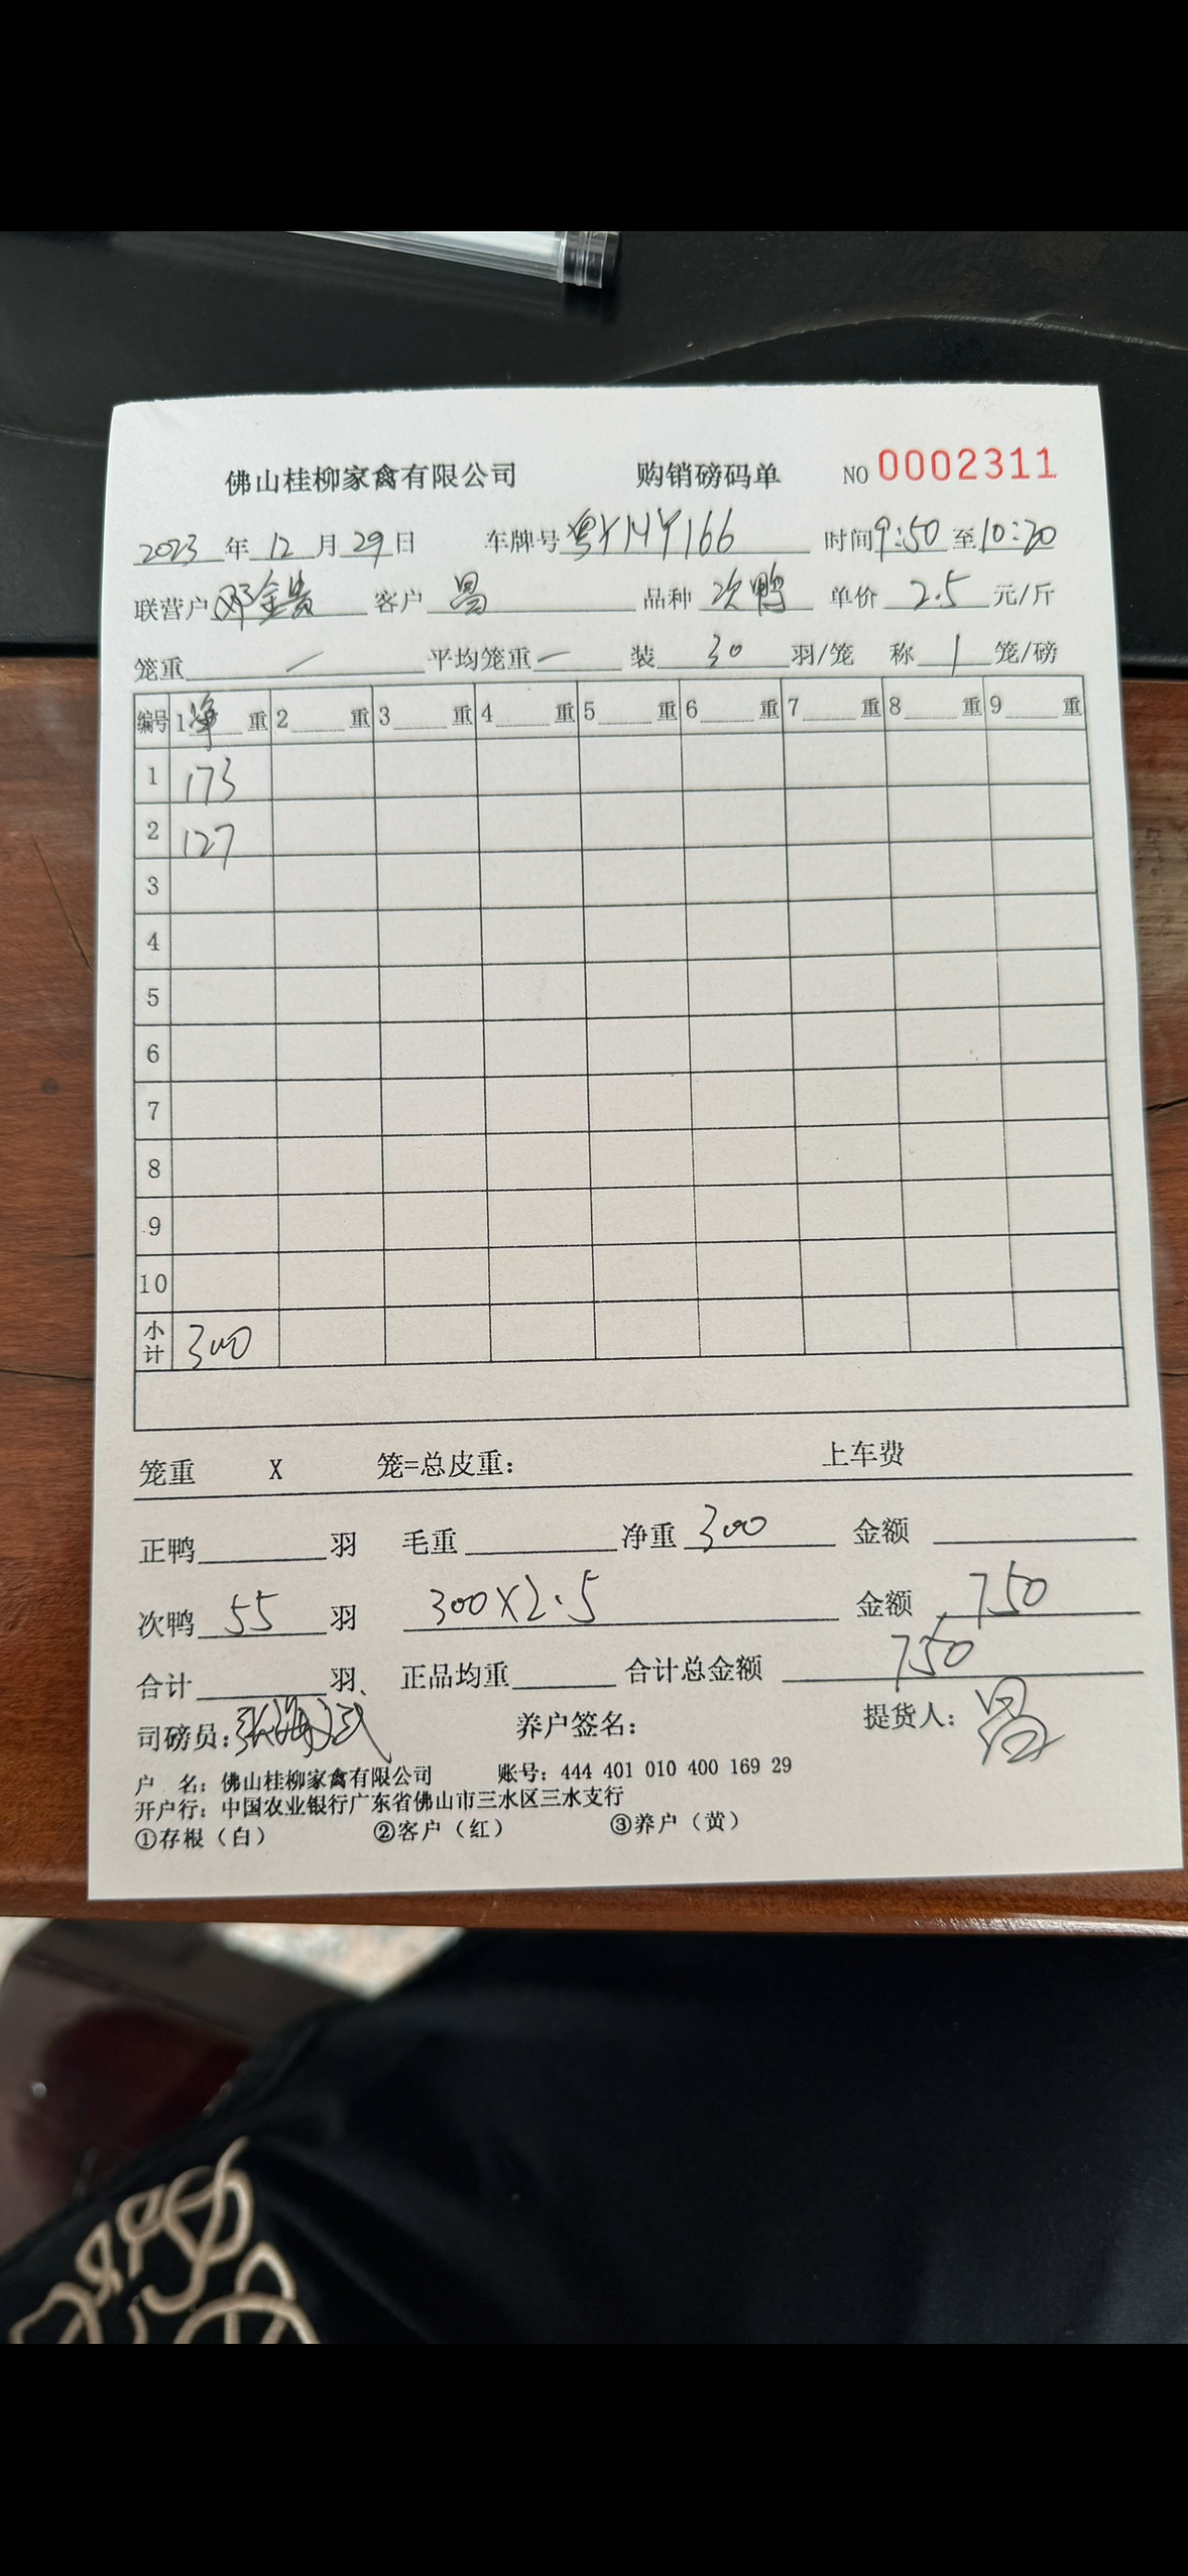 佛山桂柳家禽有限公司 购销磅码单 NO 0002311
2023 年 12 月 29 日 车牌号 粤YHY166 时间 9:50 至 10:20
联营户 邓金贵 客户 昌 品种 次鸭 单价 2.5 元/斤
笼重 — 平均笼重 — 装 30 羽/笼 称 1 笼/磅
编号 1 净 重 2 重 3 重 4 重 5 重 6 重 7 重 8 重 9 重
1 173
2 127
3
4
5
6
7
8
9
10
小计 300
笼重 X 笼=总皮重： 上车费
正鸭 羽 毛重 净重 300 金额
次鸭 55 羽 300X2.5 金额 750
合计 羽、 正品均重 合计总金额 750
司磅员： 养户签名： 提货人：昌
户 名：佛山桂柳家禽有限公司 账号：444 401 010 400 169 29
开户行：中国农业银行广东省佛山市三水区三水支行
①存根（白） ②客户（红） ③养户（黄）